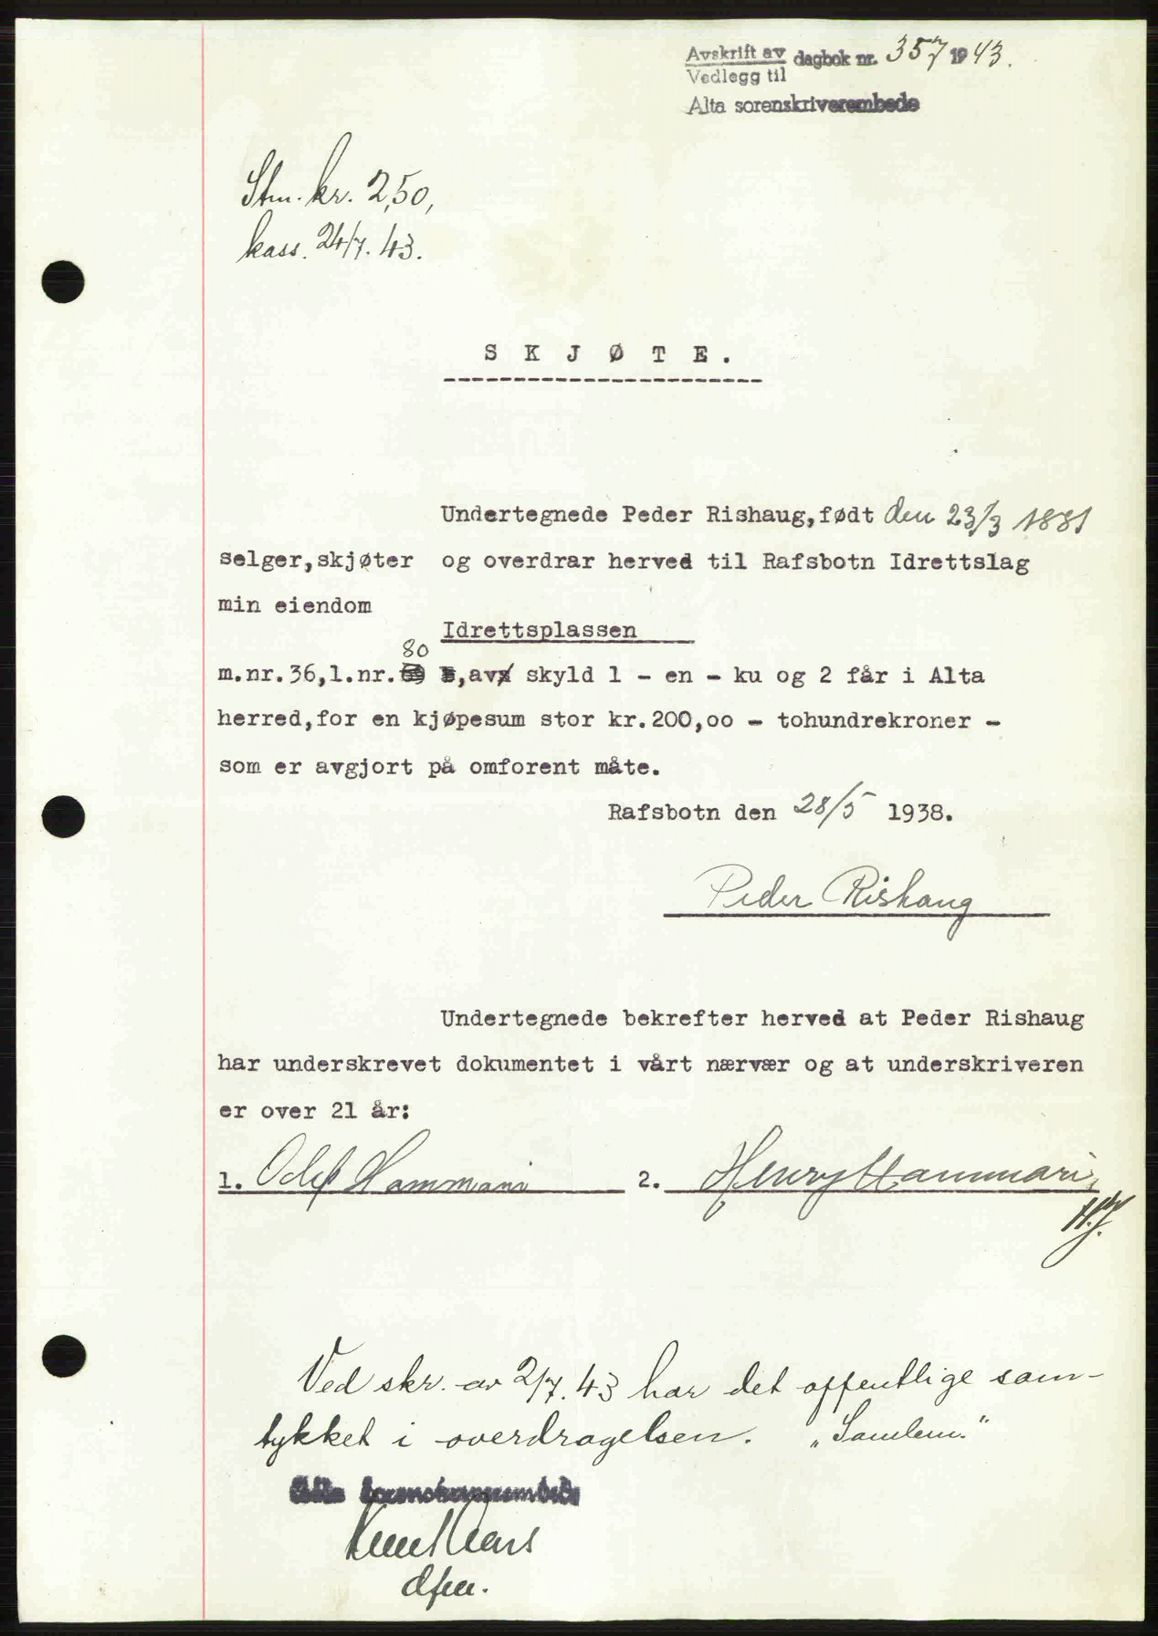 Avskrift av dagbok nr. 357 1943.
Vedlegg til
Alta sorenskriverembede
Stm. kr. 2,50,
kass. 24/7. 43.
SKJØTE.
Undertegnede Peder Rishaug,født den 23/3 1881
selger,skjøter og overdrar herved til Rafsbotn Idrettslag
min eiendom
Idrettsplassen
80
m.nr.36,l.nr. ,av skyld 1 - en - ku og 2 får i Alta
herred,for en kjøpesum stor kr.200,oo - tohundrekroner -
som er avgjort på omforent måte.
Rafsbotn den 28/5 1938.
Peder Rishaug
Undertegnede bekrefter herved at Peder Rishaug
har underskrevet dokumentet i vårt nærvær og at underskriveren
er over 21 år:
1. Hammari 2. Henry Hammari,
H.J.
Ved skr. av 2/7. 43 har det offentlige sam-
tykket i overdragelsen. "Samlem."
Alta Sorenskriverembede